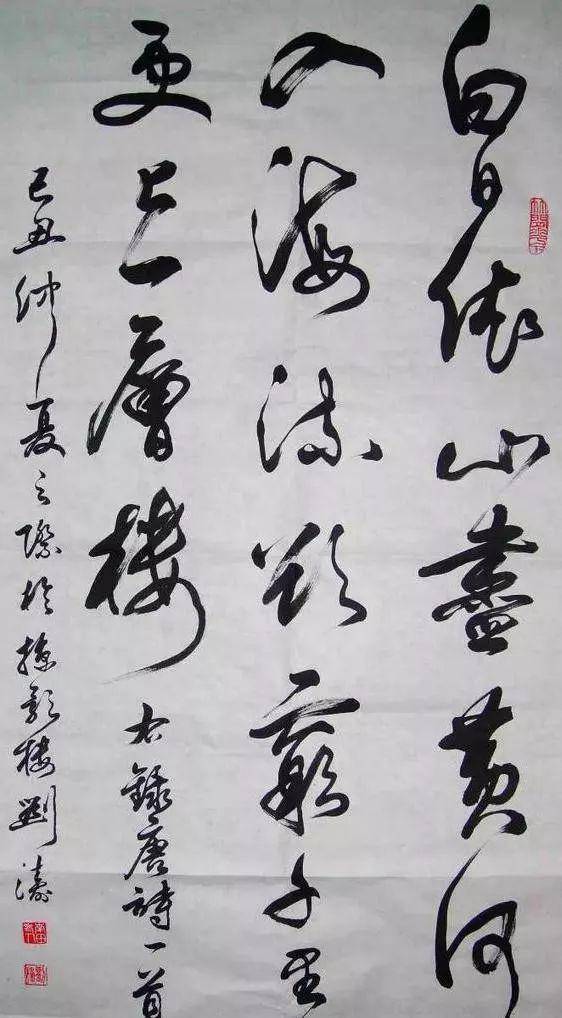 白日依山盡黄河
入海流欲窮千里目
更上一層樓
右錄唐詩一首
己丑仲夏之際於掠影樓劉濤